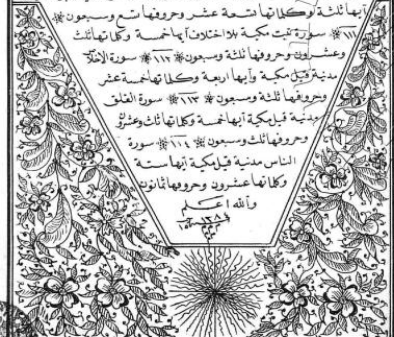 آيها ثلثة وكلماتها تسعة عشر وحروفها تسع وسبعون ❊
١١١ ❊ سورة تبت مكية بلا اختلاف آيها خمسة وكلماتها ثلث
وعشرون وحروفها ثلثة وسبعون ❊ ١١٢ ❊ سورة الاخلاص
مدنية وقيل مكية وآيها اربعة وكلماتها خمسة عشر
وحروفها ثلثة وسبعون ❊ ١١٣ ❊ سورة الفلق
مدنية قيل مكية آيها خمسة وكلماتها ثلث وعشرون
وحروفها ثلث وسبعون ❊ ١١٤ ❊ سورة
الناس مدنية قيل مكية آيها ستة
وكلماتها عشرون وحروفها ثمانون
والله اعلم